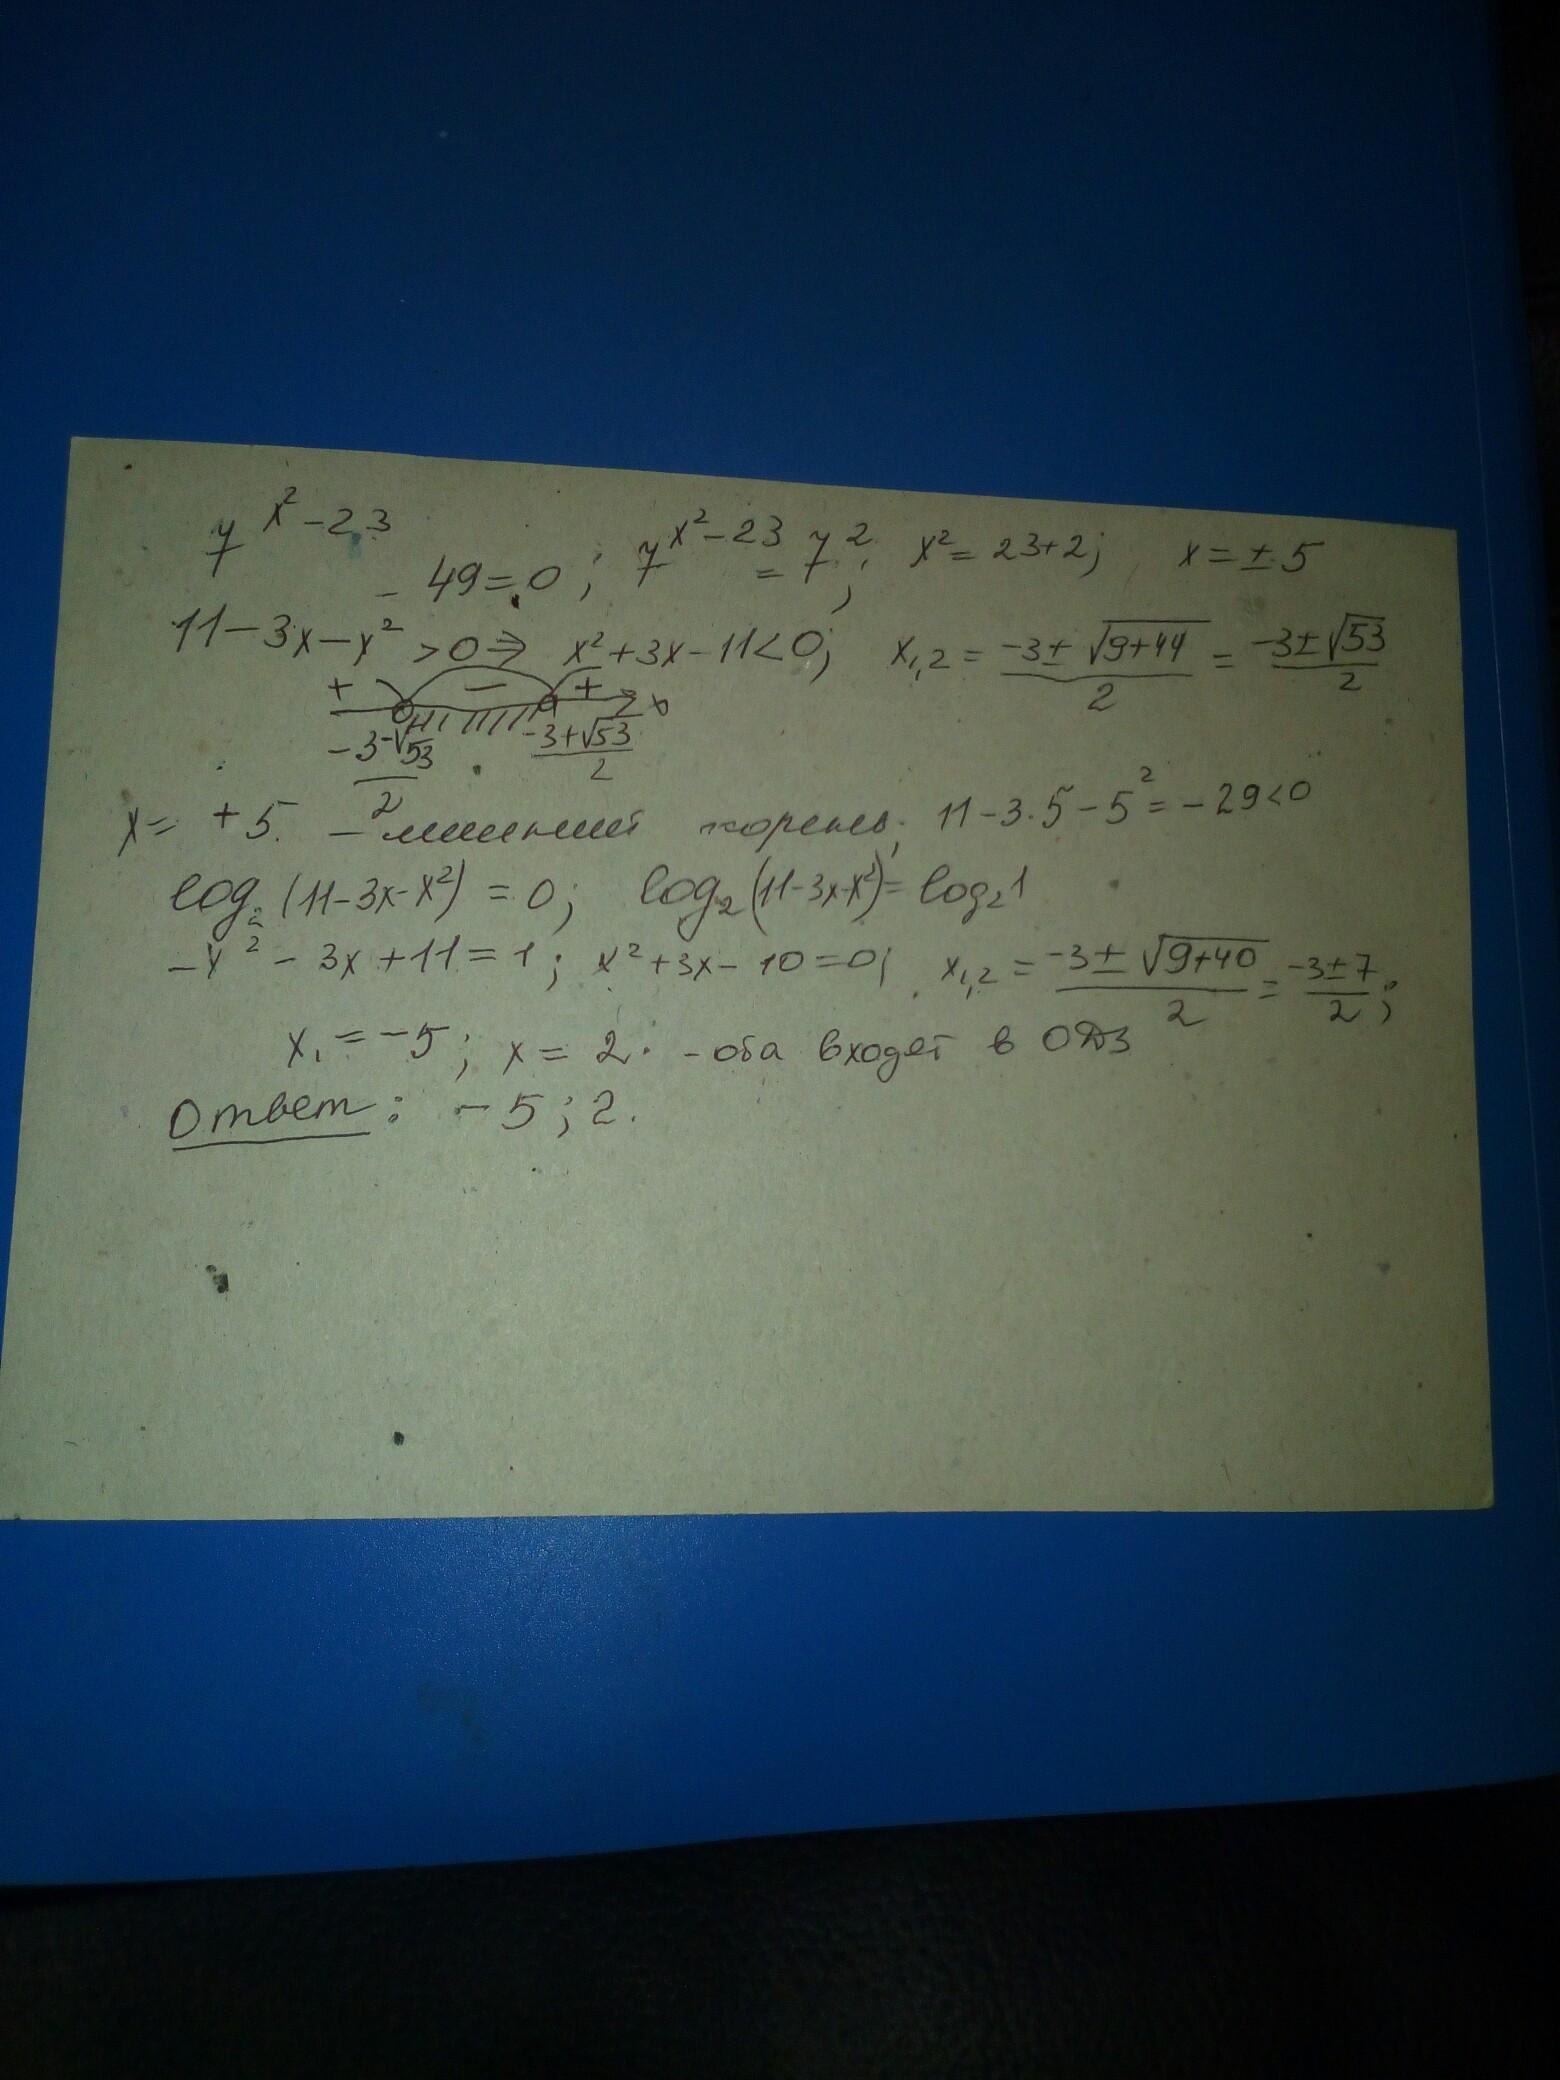 7^(x²-23) - 49 = 0; 7^(x²-23) = 7²; x² = 23+2; x = ± 5
11-3x-x² > 0 ⇒ x²+3x-11<0; x₁,₂ = (-3± √(9+44))/2 = (-3±√53)/2
+ − + x
(-3-√53)/2 (-3+√53)/2
x = +5. – лишний корень; 11-3·5-5² = -29<0
log₂ (11-3x-x²) = 0; log₂(11-3x-x²) = log₂1
-x² - 3x + 11 = 1; x²+3x-10=0; x₁,₂ = (-3± √(9+40))/2 = (-3±7)/2;
x₁ = -5; x = 2. - оба входят в ОДЗ
Ответ: -5; 2.